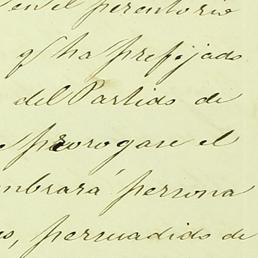 en el perentorio
q.ᵉ ha prefijado
del Partido de
prorogase el
mbrará persona
persuadido de